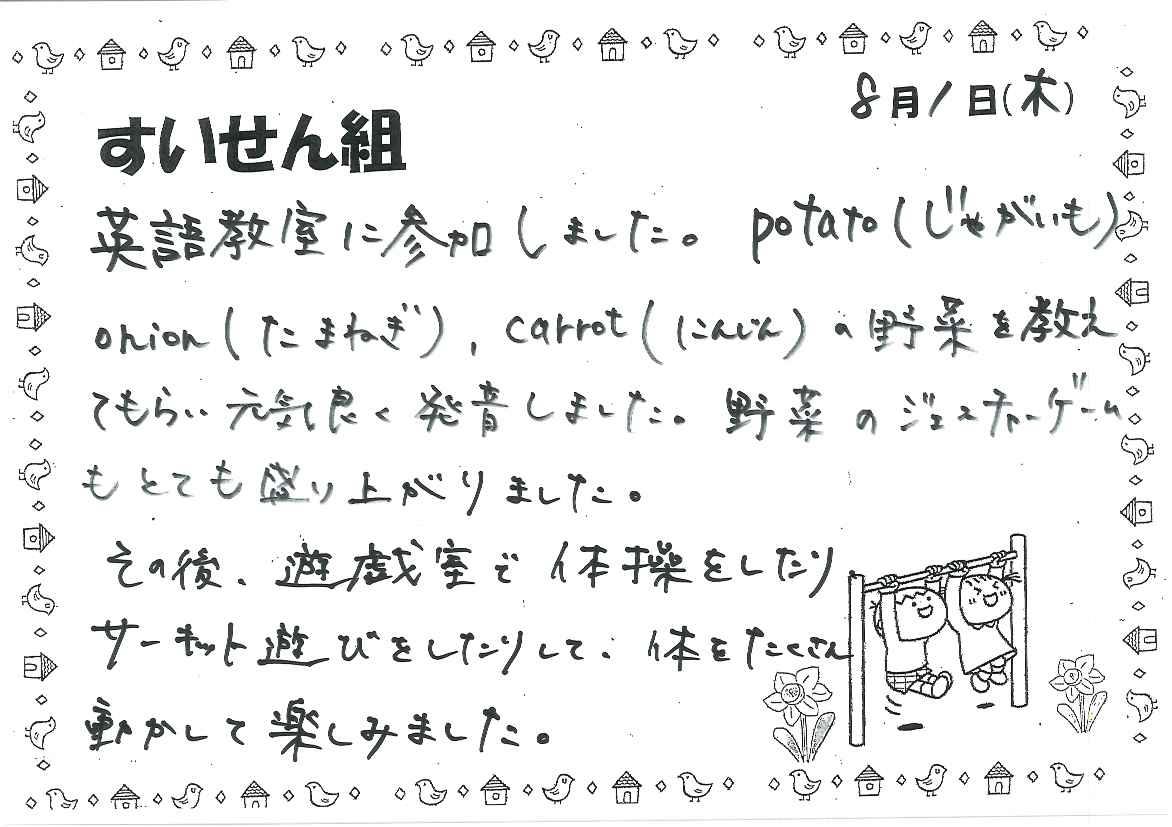 8月1日(木)
すいせん組
英語教室に参加しました。 potato(じゃがいも)
onion(たまねぎ), carrot(にんじん)の野菜を教え
てもらい元気良く発音しました。野菜のジェスチャーゲーム
もとても盛り上がりました。
その後、遊戯室で体操をしたり、
サーキット遊びをしたりして、体をたくさん
動かして楽しみました。